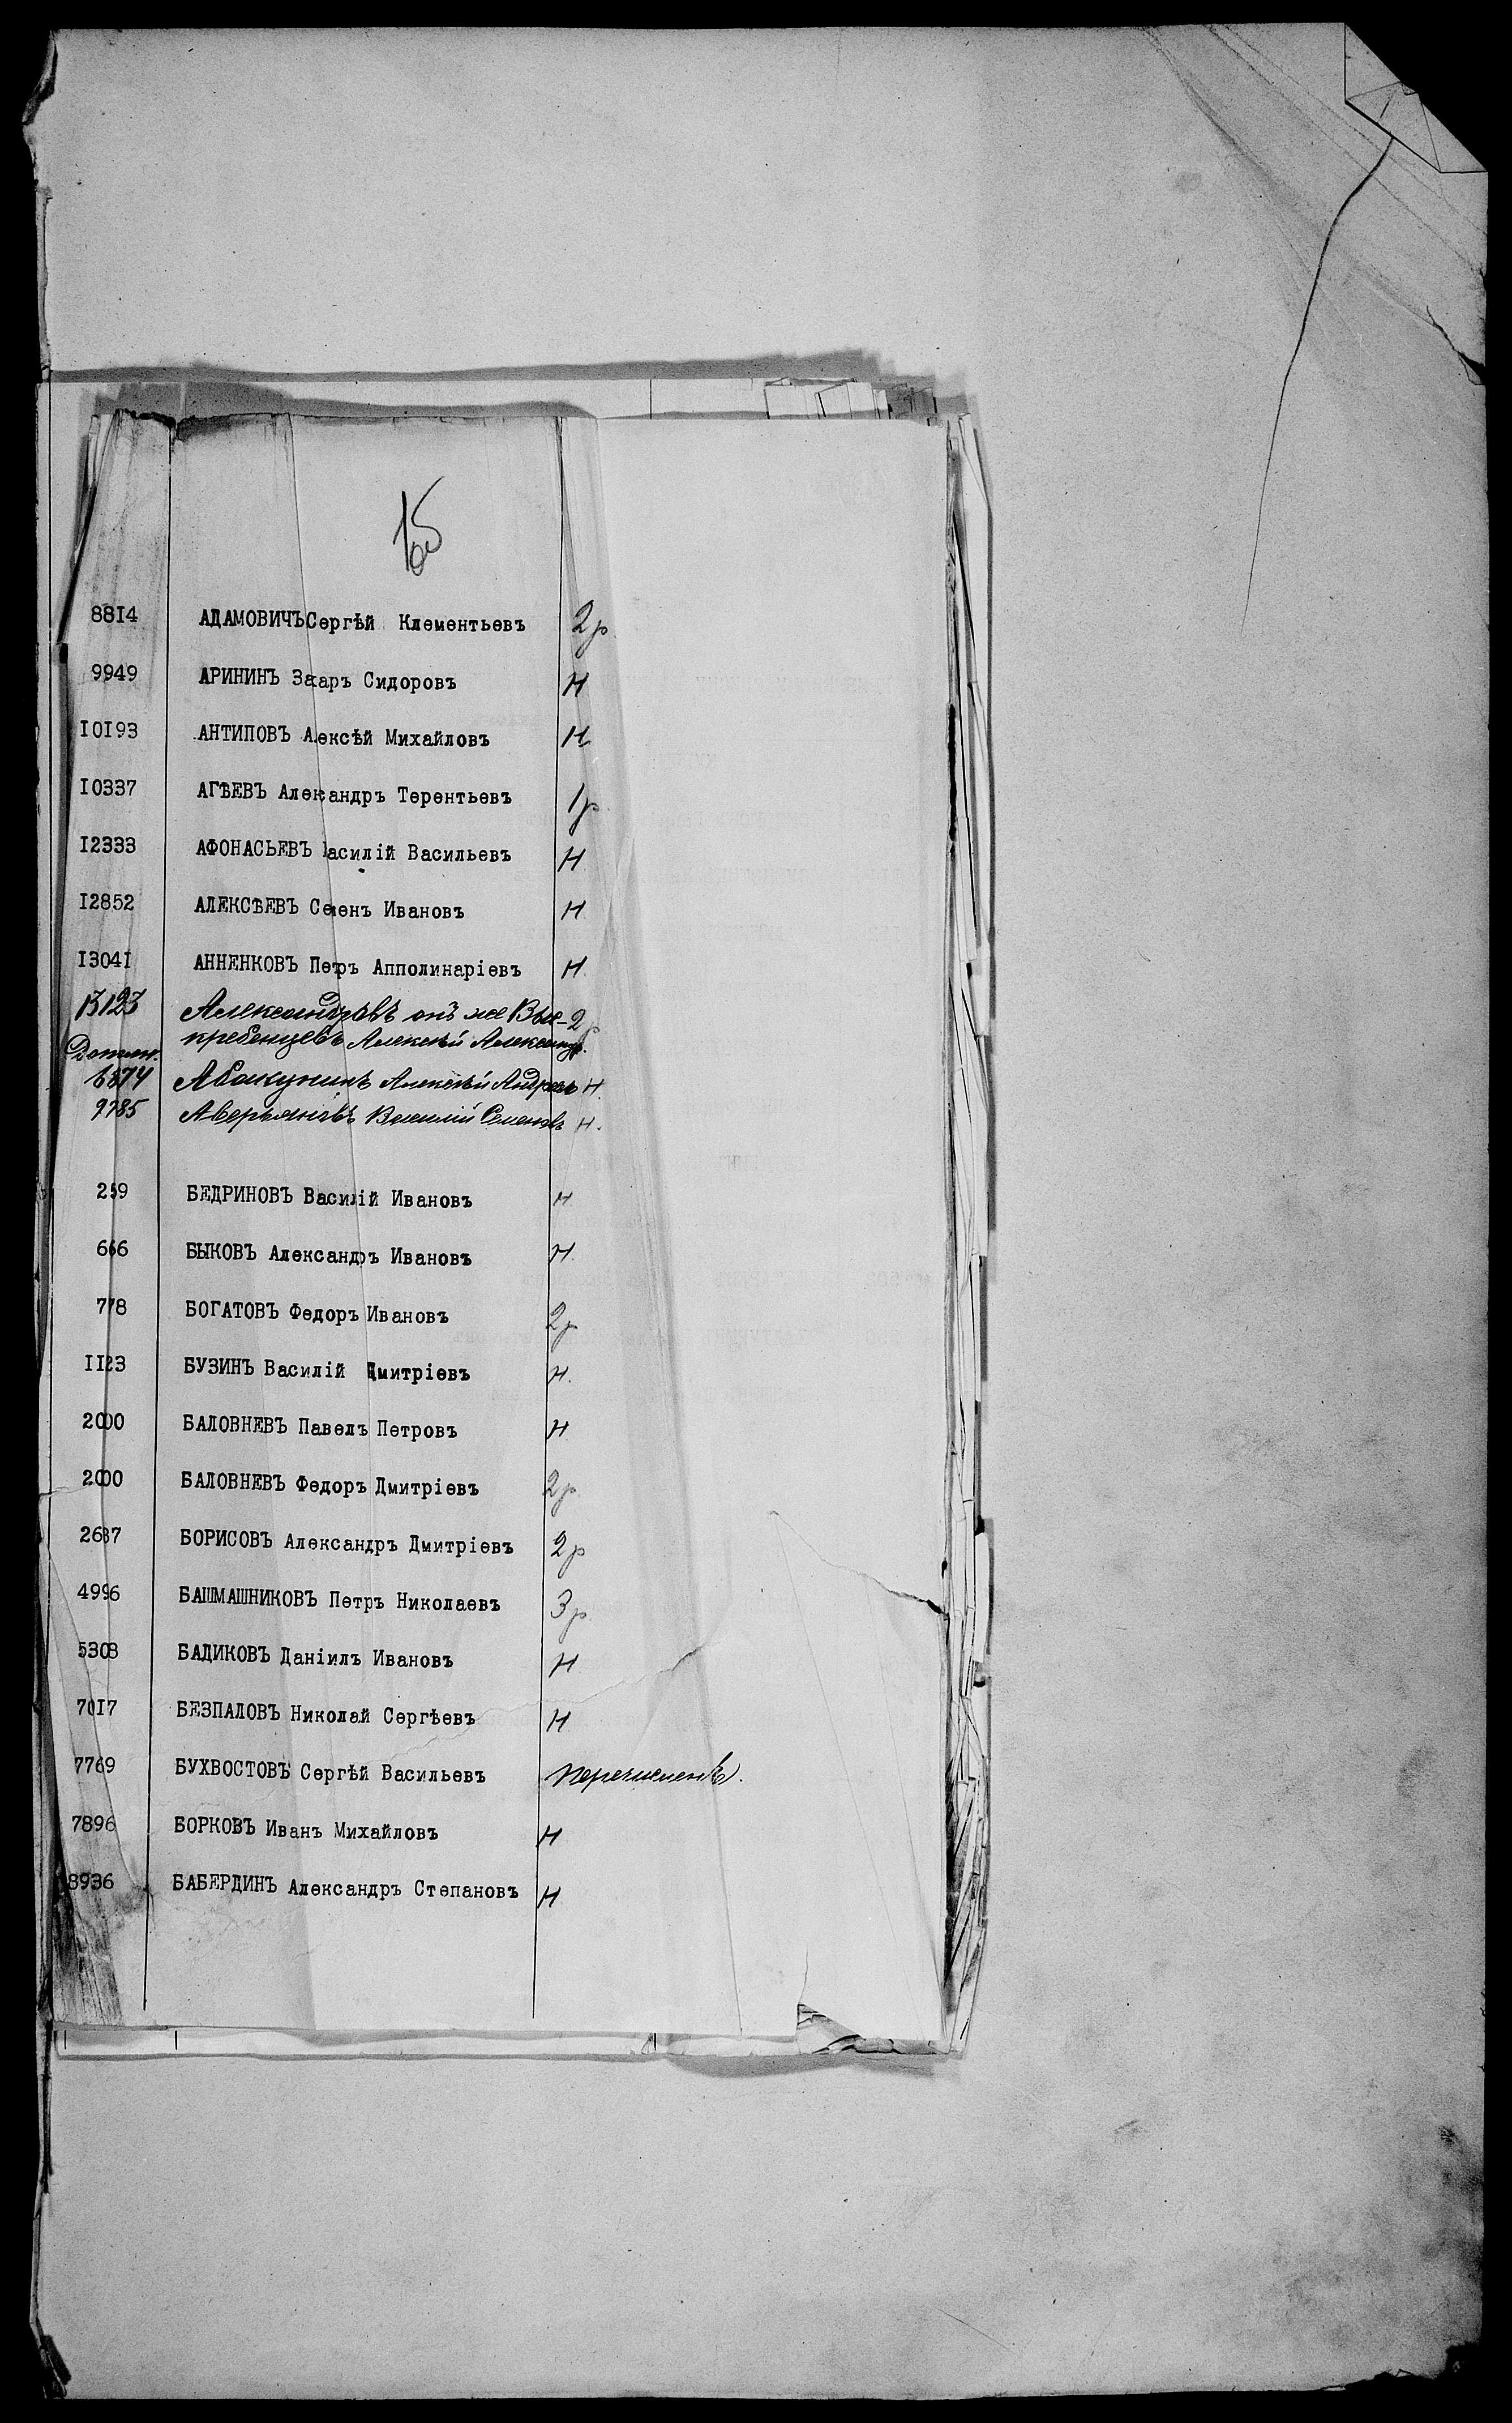 8814 АДАМОВИЧЪ Сергѣй Клементьевъ 2р.
9949 АРИНИНЪ Захаръ Сидоровъ Н
10193 АНТИПОВЪ Алексѣй Михайловъ Н
10337 АГѢЕВЪ Александръ Терентьевъ 1р.
12333 АФОНАСЬЕВЪ Василій Васильевъ Н
12852 АЛЕКСѢЕВЪ Семенъ Ивановъ Н
13041 АННЕНКОВЪ Петръ Апполинаріевъ Н
13123 Александровъ онъ же Вые- 2р
кребенцевъ Алексѣй Александр.
Дополн.
6874 Абакумкинъ Алексѣй Андреевъ Н.
9785 Аверьяновъ Василій Семеновъ Н.
259 БЕДРИНОВЪ Василій Ивановъ Н
666 БЫКОВЪ Александръ Ивановъ Н.
778 БОГАТОВЪ Федоръ Ивановъ 2р
1123 БУЗИНЪ Василій Дмитріевъ Н.
2000 БАЛОВНЕВЪ Павелъ Петровъ Н
2000 БАЛОВНЕВЪ Федоръ Дмитріевъ 2р.
2637 БОРИСОВЪ Александръ Дмитріевъ 2р
4996 БАШМАШНИКОВЪ Петръ Николаевъ 3р.
5303 БАДИКОВЪ Даніилъ Ивановъ Н
7017 БЕЗПАЛОВЪ Николай Сергѣевъ Н
7769 БУХВОСТОВЪ Сергѣй Васильевъ перечисленъ.
7896 БОРКОВЪ Иванъ Михайловъ Н
8936 БАБЕРДИНЪ Александръ Степановъ Н